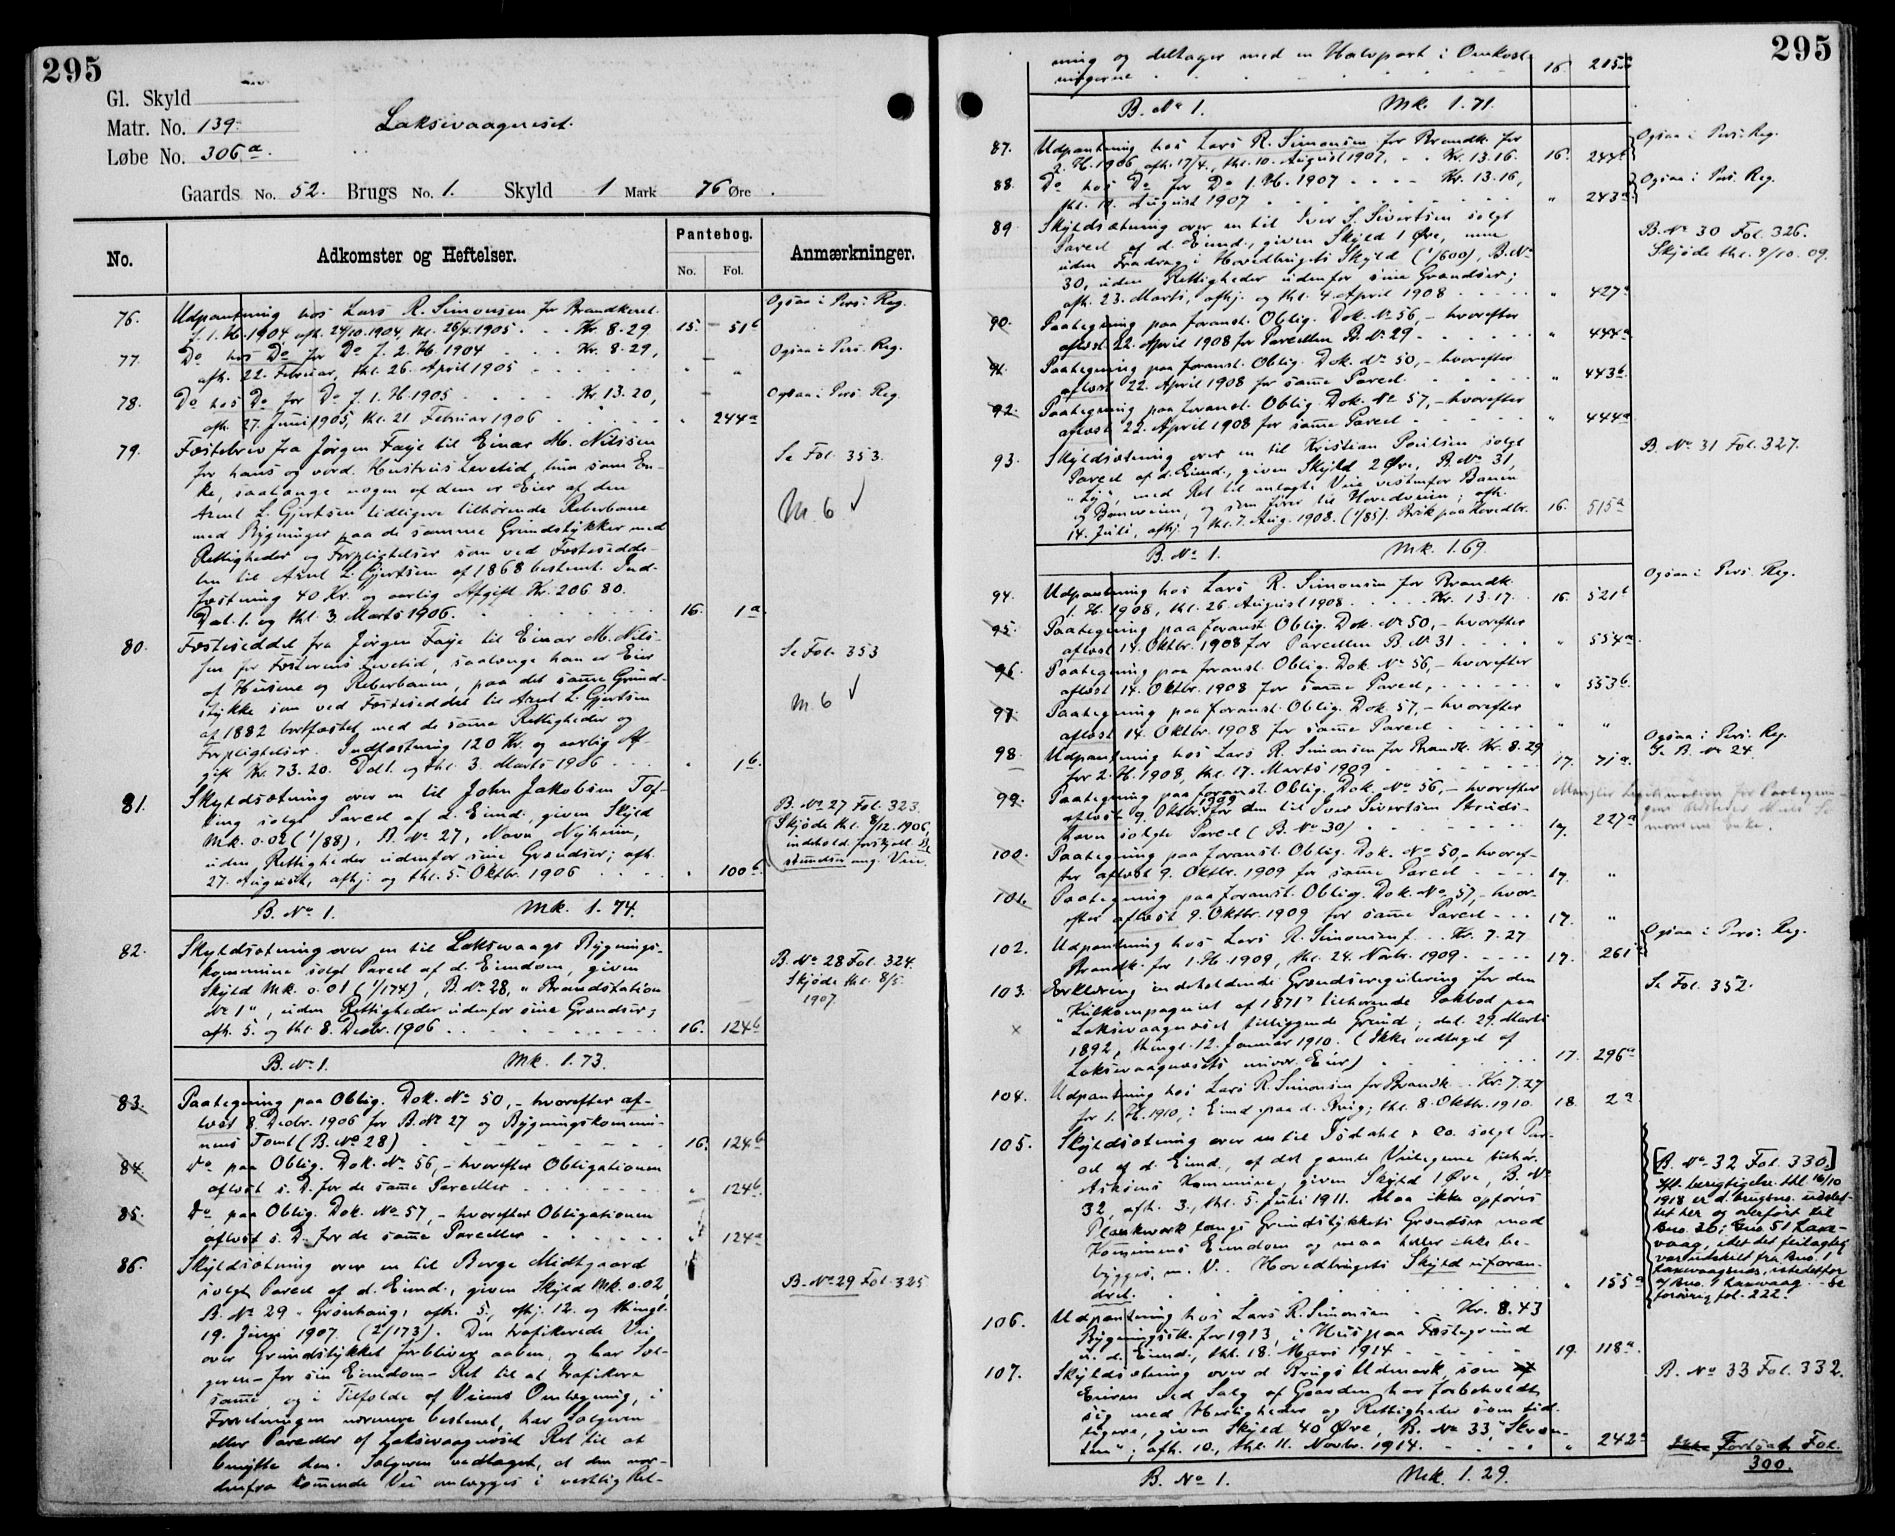 295
Gl. Skyld
Matr. No. 139.
Løbe No. 306a.
Laksevaagneset.
Gaards No. 52. Brugs No. 1. Skyld 1 Mark 76 Øre.
No. Adkomster og Heftelser. Pantebog. No. Fol. Anmærkninger.
76. Udpantning hos Lars R. Simonsen for Brandkont. Ogsaa i Pers. Reg.
f. 1. H. 1904, afh. 24/10.1904, thl. 26/4.1905 . . Kr. 8.29, 15. 51b
77. Do hos Do for Do f. 2. H. 1904 . . . Kr. 8.29, Ogsaa i Pers. Reg.
afh. 22. Februar, thl. 26. April 1905 . . . . " "
78. Do hos Do for Do f. 1. H. 1905 . . . . Kr. 13.20, Ogsaa i Pers. Reg.
afh. 27. Juni 1905, thl. 21. Februar 1906 . . . . " 244a
79. Fæstebrev fra Jørgen Faye til Einar M. Nilssen Se Fol. 353.
for hans og vord. Hustrus Levetid, hun som En-
ke, saalænge nogen af dem er Eier af den
Arent L. Gjertsen tidligere tilhørende Reberbane M. 6 ✓
med Bygninger paa de samme Grundstykker med
Rettigheder og Forpligtelser som ved Fæstesedde-
len til Arent L. Gjertsen af 1868 bestemt. Ind-
fæstning 40 Kr. og aarlig Afgift Kr. 206.80.
Dat. 1. og thl. 3. Marts 1906. . . . . . . 16. 1a
80. Fæsteseddel fra Jørgen Faye til Einar M. Nils- Se Fol. 353
sen for Fæsterens Levetid, saalænge han er Eier
af Husene og Reberbanen, paa det samme Grund-
stykke som ved Fæsteseddel til Arent L. Gjertsen M. 6 ✓
af 1882 bortfæstet, med de samme Rettigheder og
Forpligtelser. Indfæstning 120 Kr. og aarlig Af-
gift Kr. 73.20. Dat. 1. og thl. 3. Marts 1906 . . . " 1b.
81. Skyldsætning over en til John Jakobsen Tof-
ting solgt Parcel af d. Eiend., given Skyld B. No 27 Fol. 323.
Mk. 0.02 (1/88), B. No 27, Navn, Nyheim, Skjøde thl. 8/12.1906,
uden Rettigheder udenfor sine Grændser; afh. indehold. forskjell. Be-
27. August, afhj. og thl. 5. Oktbr. 1906 . . . . " 100b. stemmelser ang. Vein.
B. No 1. Mk. 1.74.
82. Skyldsætning over en til Laksevaags Bygnings-
kommune solgt Parcel af d. Eiendom, given B. No 28 Fol. 324.
Skyld Mk. 0.01 (1/174), B. No 28, "Brandstation Skjøde thl. 8/5.
No 1", uden Rettigheder udenfor sine Grændser; 1907.
afh. 5. og thl. 8. Decbr. 1906 . . . . . . . 16. 124b
B. No 1. Mk. 1.73.
83. Paategning paa Oblig. Dok. No 50, - hvorefter af-
løst 8. Decbr. 1906 for B. No 27 og Bygningskommu-
nens Tomt (B. No 28) . . . . . . . 16. 124b
84. do paa Oblig. Dok. No 56, - hvorefter Obligationen
afløst s. D. for de samme Parceller . . . . . . " 124b
85. Do paa Oblig. Dok. No 57, - hvorefter Obligationen
afløst s. D. for de samme Parceller . . . . . . " 124a
86. Skyldsætning over en til Børge Midtgaard
solgt Parcel af d. Eiend., given Skyld Mk. 0.02, B. No 29 Fol. 325
B. No 29 "Grønhaug", afh. 5., afhj. 12. og thingl.
19. Juni 1907. (2/173). Den trafikerede Vei
over Grundstykket forbliver aaben, og har Sæl-
geren - for sin Eiendom - Ret til at trafikere
samme, og i Tilfælde af Veiens Omlægning, i
Forretningen nærmere bestemt, har Sælgeren
eller Parceller af Laksevaagneset Ret til at
benytte den. Sælgeren vedtaget, at den nor-
denfra kommende Vei omlægges i vestlig Ret-
295
ning og deltager med en Halvpart i Omkost-
ningerne . . . . . . . 16. 215
B. No 1. Mk. 1.71.
87. Udpantning hos Lars R. Simonsen for Brandk. for Ogsaa i Pers. Reg.
2. H. 1906, afh. 17/4., thl. 10. August 1907. . . Kr. 13.16. 16. 244b
88. Do hos Do for Do 1. H. 1907 . . . . Kr. 13.16, Ogsaa i Pers. Reg.
thl. 17. August 1907 . . . . . . . " 243a
89. Skyldsætning over en til Iver S. Sivertsen solgt
Parcel af d. Eiend., given Skyld 1 Øre, men B. No 30 Fol. 326.
uden Fradrag i Hovedbrugets Skyld (1/600), B. No Skjøde thl. 9/10.09.
30, uden Rettigheder udenfor sine Grændser;
afh. 23. Marts, afhj. og thl. 4. April 1908 . . . . " 427a
90. Paategning paa foranst. Oblig. Dok. No 56, - hvorefter
afløst 22. April 1908 for Parcellen B. No 29 . . . . " 444a
91. Paategning paa foranst. Oblig. Dok. No 50, - hvorefter
afløst 22. April 1908 for samme Parcel . . . . " 443b.
92. Paategning paa foranst. Oblig. Dok. No 57, - hvorefter
afløst 22. April 1908 for samme Parcel . . . . " 444a
93. Skyldsætning over en til Kristian Poulsen solgt B. No 31 Fol. 327.
Parcel af d. Eiend., given Skyld 2 Øre, B. No 31,
"Ly", med Ret til anlagte Veie vestenfor Banen
og Baneveien, og som fører til Hovedveien; afh.
14. Juli, afhj. og thl. 7. Aug. 1908. (1/85). Brik paa Hovedbr. 16. 515a
B. No 1. Mk. 1.69.
94. Udpantning hos Lars R. Simonsen for Brandk. Ogsaa i Pers. Reg.
1. H. 1908, thl. 26. August 1908 . . . . Kr. 13.17 . . 16. 521b
95. Paategning paa foranst. Oblig. Dok. No 50, - hvorefter
afløst 14. Oktbr. 1908 for Parcellen B. No 31 . . . . " 554a
96. Paategning paa foranst. Oblig. Dok. No 56, - hvorefter
afløst 14. Oktbr. 1908 for samme Parcel, . . . . " 553b.
97. Paategning paa foranst. Oblig. Dok. 57, - hvorefter
afløst 14. Oktbr. 1908 for samme Parcel . . . . " "
98. Udpantning hos Lars R. Simonsen for Brandk. Kr. 8.29 Ogsaa i Pers. Reg.
for 2. H. 1908, thl. 17. Marts 1909 . . . . 17. 71a. Se B. No 24.
99. Paategning paa foranst. Oblig. Dok. No 56, - hvorefter
afløst 9. Oktbr. 1909 for den til Iver Sivertsen Skuds-
havn solgte Parcel (B. No 30) . . . . 17. 227a
100. Paategning paa foranst. Oblig. Dok. No 50, - hvoref-
ter afløst 9. Oktbr. 1909 for samme Parcel . . . . 17. "
101. Paategning paa foranst. Oblig. Dok. No 57, - hvor-
efter afløst 9. Oktbr. 1909 for samme Parcel . . . 17. "
102. Udpantning hos Lars R. Simonsen f. . . Kr. 7.27 Ogsaa i Pers. Reg.
Brandk. for 1. H. 1909, thl. 24. Novbr. 1909 . . . . 17. 261a
103. Erklæring indeholdende Grændseregulering for den Se Fol. 352.
"Kulkompagniet af 1871" tilhørende Søkbod paa
Laksevaagneset tilliggende Grund; dat. 29. Marts
1892, thingl. 12. Januar 1910. (Ikke vedtaget af
Laksevaagnesets nuvær. Eier) . . . . 17. 296a
104. Udpantning hos Lars R. Simonsen for Brandk. . Kr. 7.27
for 1. H. 1910, i Eiend. paa d. Brug; thl. 8. Oktbr. 1910. 18. 2a
105. Skyldsætning over en til Isdahl & Co. solgt Par-
cel af d. Eiend., af det gamle Veilegeme tilhør. [B. No 32 Fol. 330.]
Askøens Kommune, given Skyld 1 Øre, B. No Ift. berigtigelse thl. 16/10
32, afh. 3., thl. 5. Juli 1911. Maa ikke opføres 1918 er d. brugsnr. udslet-
Plankværk langs Grundstykkets Grændse mod tet her og overført til
Kommunens Eiendom og maa heller ikke be- Bno. 20, Gno. 51 Laxe-
bygges, m. V. . . Hovedbrugets Skyld uforan- vaag, idet det feilagtig
dret. . . . . . . . " 155a var utskilt fra Bno. 1
Laxevaagnes, istedetfor
af Bno. 1 Laxevaag. - Se
forøvrig fol. 222.
106. Udpantning hos Lars R. Simonsen . . Kr. 8.43
Bygningssk. for 1913, i Hus paa Fæstegrund
u. d. Eiend., thl. 18. Mars 1914 . . . . 19. 118a.
107. Skyldsætning over d. Brugs Udmark, som B. No 33 Fol. 332.
Eieren ved Salg af Gaarden har forbeholdt
sig med Herligheder og Rettigheder som tid-
ligere, given Skyld 40 Øre, B. No 33, "Skræn-
ten"; afh. 10., thl. 11. Novbr. 1914. . . . . " 242a Fortsat Fol.
300.
B. No 1. Mk. 1.29.